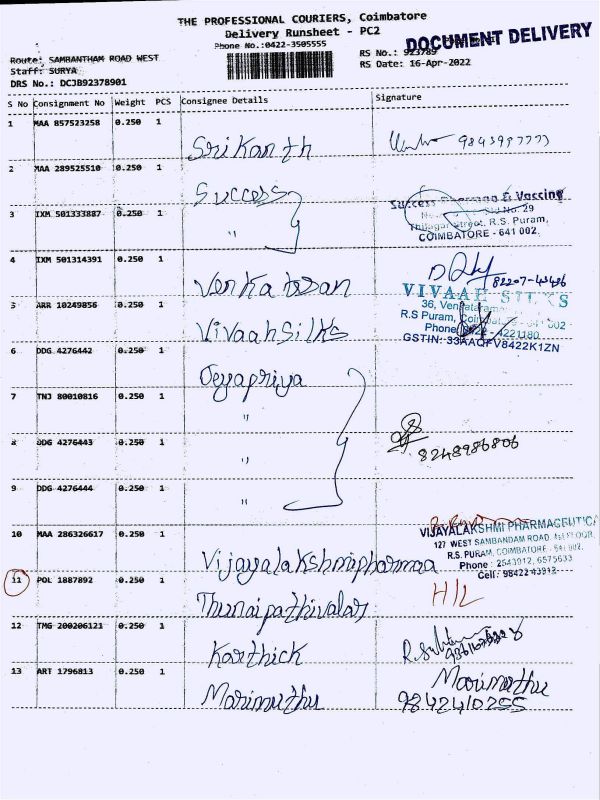 THE PROFESSIONAL COURIERS, Coimbatore
Delivery Runsheet - PC2
Phone No.:0422-3505555
DOCUMENT DELIVERY
Route: SAMBANTHAM ROAD WEST
Staff: SURYA
DRS No.: DCJB92378901
RS No.: 923789
RS Date: 16-Apr-2022
S No Consignment No Weight PCS Consignee Details Signature
1 MAA 857523258 0.250 1 Srikanth
2 MAA 289525510 0.250 1 Success
Success Pharma & Vaccine
Old No. 29
Thilagar Street, R.S. Puram,
COIMBATORE - 641 002.
3 IXM 501333887 0.250 1 "
4 IXM 501314391 0.250 1 Venkatesan
5 ARR 10249856 0.250 1 Vivaah Silks
VIVAAH SILKS
36, Venketaraman
R.S Puram, Coimbatore - 641 002
Phone: 0422 - 4221180
GSTIN: 33AAQFV8422K1ZN
6 DDG 4276442 0.250 1 Jeyapriya
7 TNJ 80010816 0.250 1 "
8 DDG 4276443 0.250 1 " 8248986806
9 DDG 4276444 0.250 1 "
10 MAA 286326617 0.250 1 Vijayalakshmipharmaa
VIJAYALAKSHMI PHARMACEUTICA
127 WEST SAMBANDAM ROAD, 1st FLOOR,
R.S. PURAM, COIMBATORE - 641 002.
Phone : 2543912, 6575633
Cell : 98422 43912
11 POL 1887892 0.250 1 Thunaipathivalar H/L
12 TMG 200206121 0.250 1 Karthick
13 ART 1796813 0.250 1 Marimuthu Marimuthu
9842410255